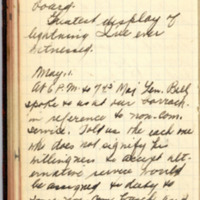 board.
Greatest display of
lightning I've ever
witnessed.
May 1.
At 6 P.M. to 7 45 Maj. Gen. Bell
spoke to us at our barrack
in reference to non-com.
service. Told us the each one
who does not signify his
willingness to accept alt-
ernative service would
be assigned to duty to